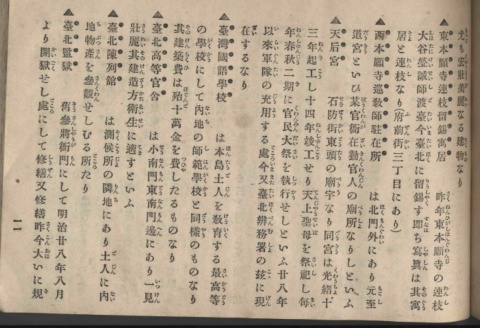 尤も宏壯美麗なる建物なり
▲東本願寺連枝留錫寓居 昨年東本願寺の連枝
大谷勝鎭師渡臺今臺北に留錫す即ち寫眞は其寓
居と連枝なり(府前街三丁目にあり)
▲西本願寺巡敎師駐在所 は北門外にあり元至
道宮といひ某官衙在勤官人の廟所なりしといふ
▲天后宮 石防街東頭の廟宇なり同宮は光緒十
三年起工し十四年竣工せり天上聖母を祭祀し每
年春秋二期に官民大祭を執行せしといふ廿八年
以來軍隊の充用する處今又臺北辨務署の玆に現
在するなり
▲臺灣國語學校 は本島土人を敎育する最高等
の學校にして內地の師範學校と同樣のものなり
其建築費は貽十萬金を費したるものなり
▲臺北高等官舍 は小南門東南門邊にあり一見
壯麗其建造方衛生に適すといふ
▲臺北陳列館 は測候所の隣地にあり土人に內
地物產を參觀せしむる所たり
▲臺北監獄 舊參將衙門にして明治廿八年八月
より開獄せし處にして修繕又修繕昨今大いに規
一一